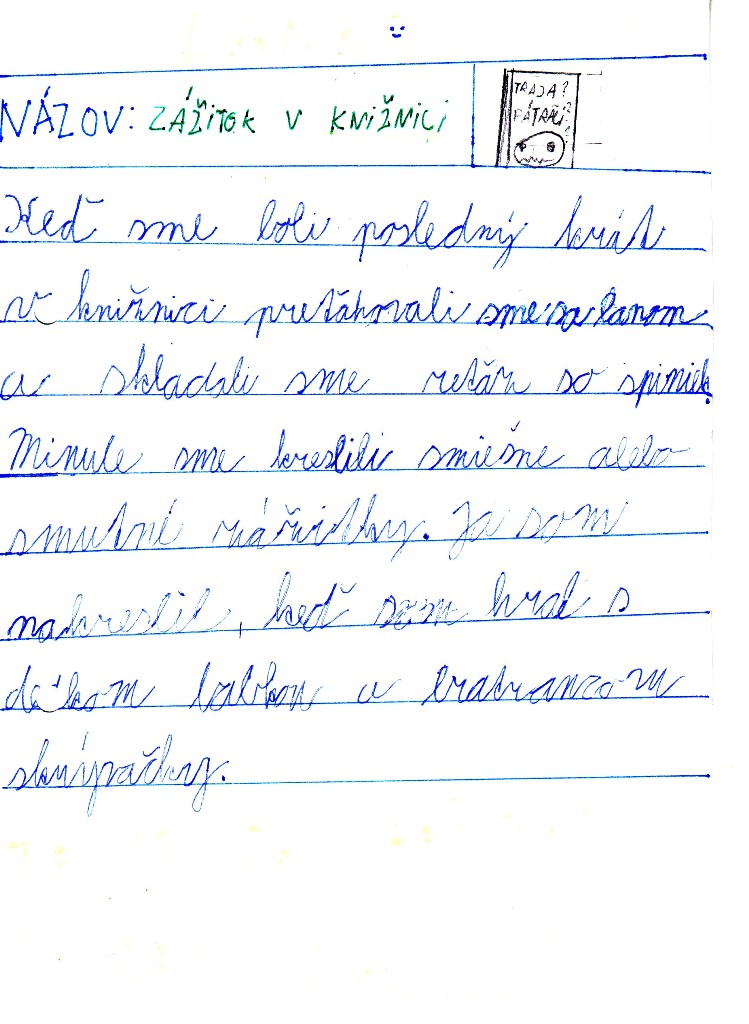 NÁZOV: ZÁŽITOK V KNIŽNICI
TRAJA?
PÁTRAČI?
Keď sme boli posledný krát
v knižnici preťahovali sme sa lanom
a skladali sme reťáz so spiniek.
Minule sme kreslili smiešne alebo
smutné zážitky. Ja som
nakreslil, keď som hral s
deťkom babkou a bratrancom
skrývačky.